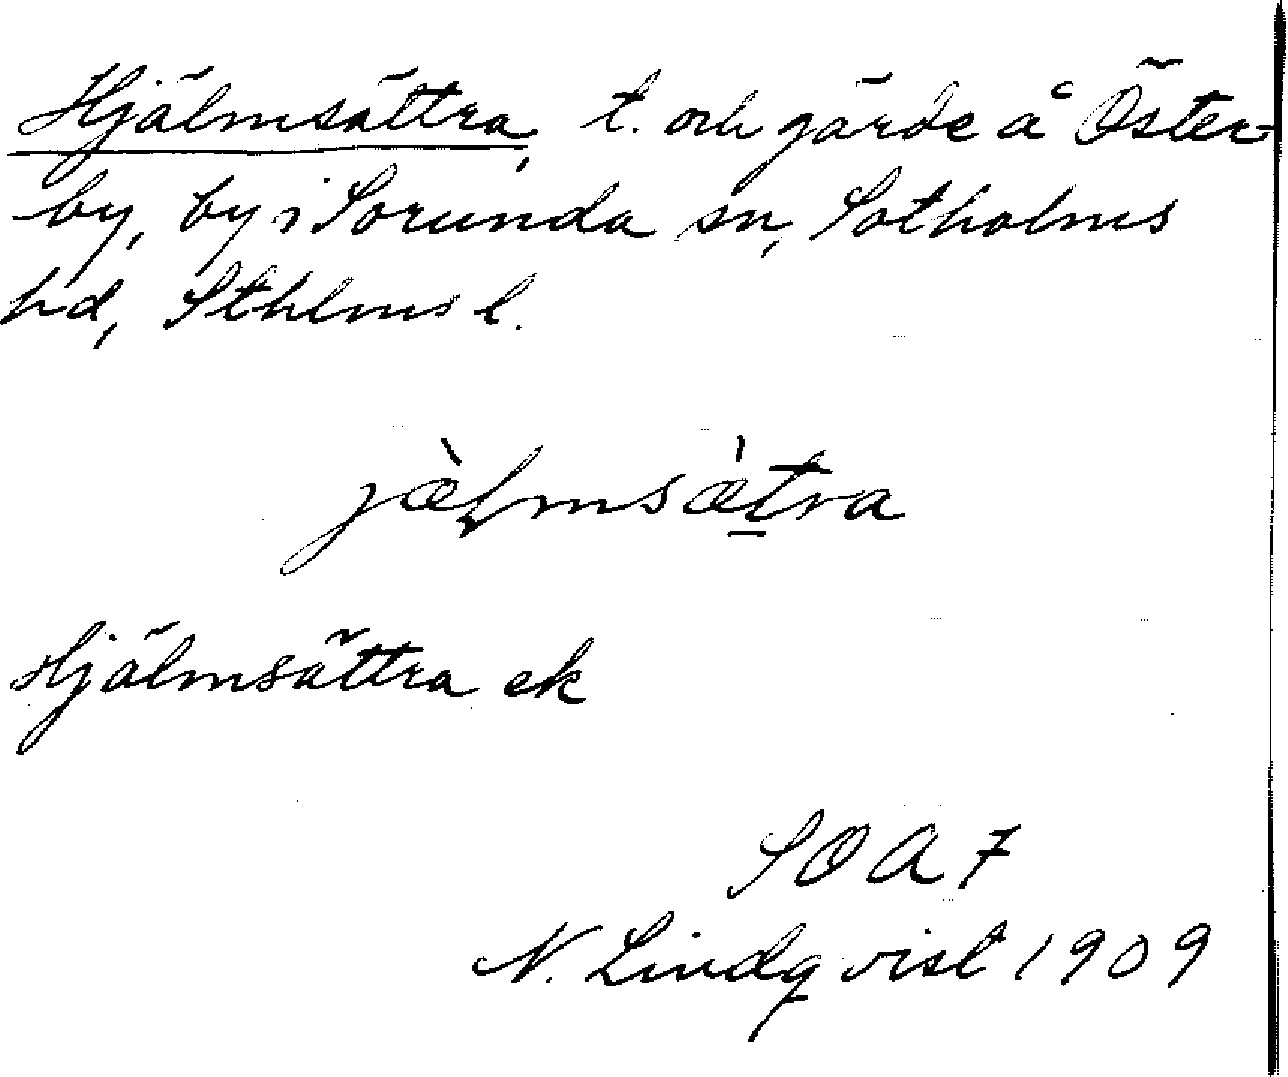 Hjälmsättra, t. och gärde å Öster-
by, by i Sorunda sn, Sotholms
hd, Sthlms l.
jæ̀lmsæ̀t̲ra
Hjälmsättra ek
SOA 7
N. Lindqvist 1909